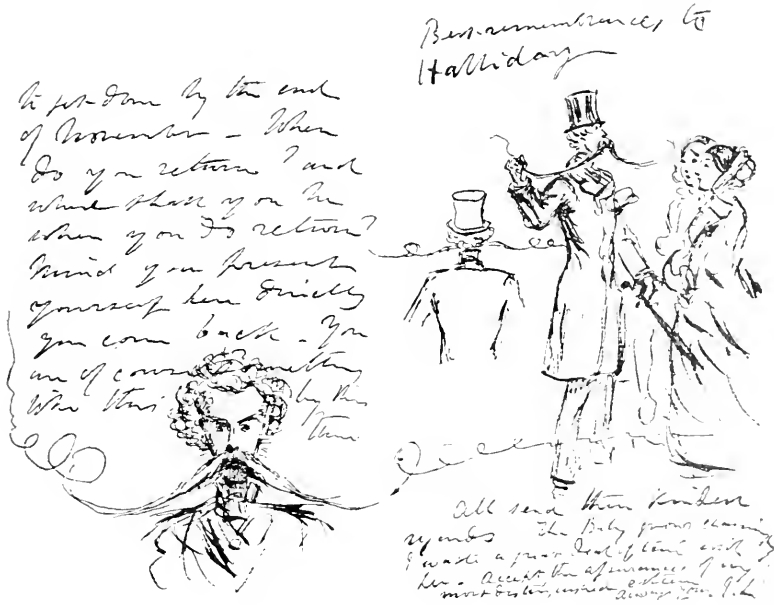 to get done by the end
of November – When
do you return? and
where shall you be
when you do return?
Mind you present
yourself here directly
you come back. You
are of course something
like this by this
time
Best remembrances to
Halliday
All send their kindest
regards The Baby grows charming
I waste a great deal of time with
her – Accept the assurances of my
most distinguished esteem
always yours